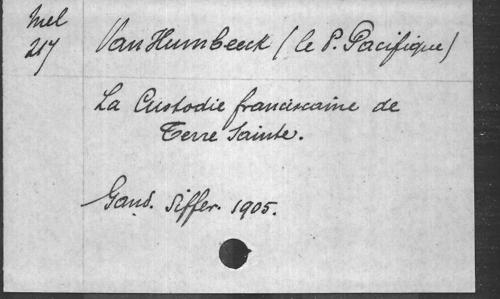 Mel
217
Van Humbeeck (le P. Pacifique)
La Custodie franciscaine de
Terre Sainte.
Gand. Siffer. 1905.